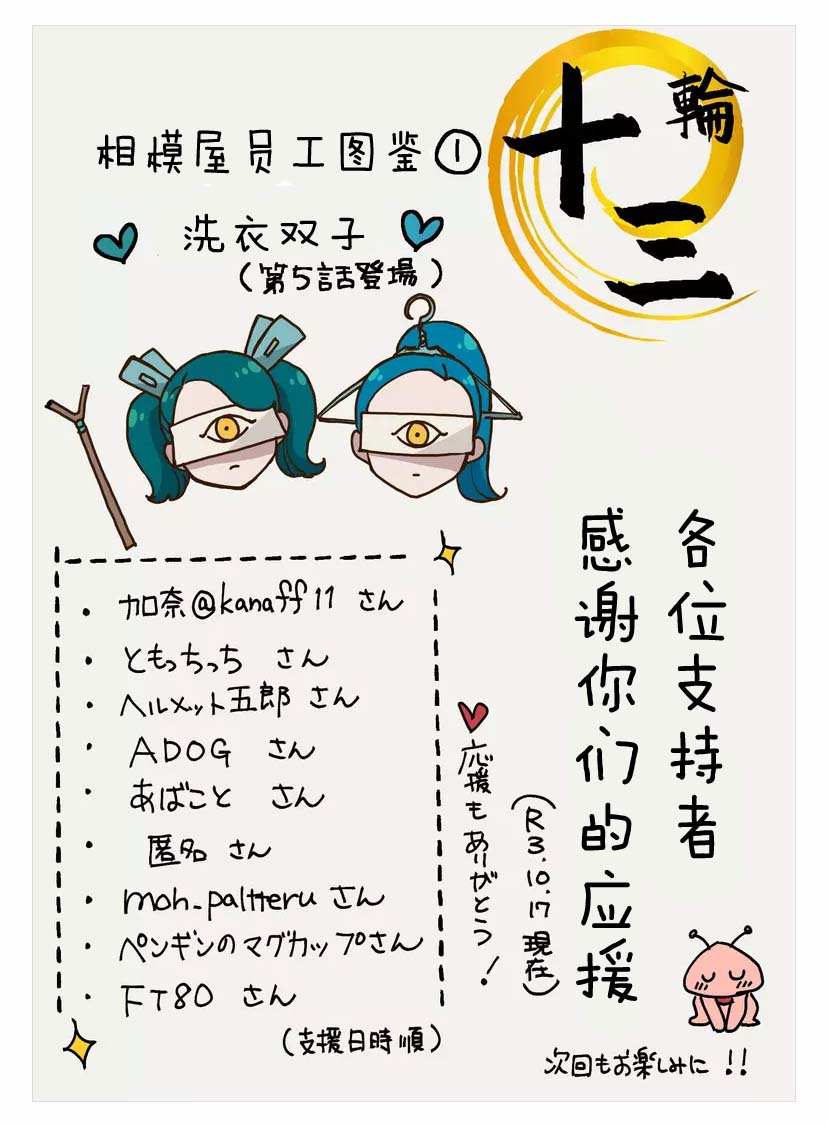 十三輪
相模屋员工图鉴①
洗衣双子
(第5話登場)
各位支持者
感谢你们的应援
(R3.10.17現在)
応援もありがとう!
・加奈@kanaff11 さん
・ともっちっち さん
・ヘルメット五郎 さん
・ADOG さん
・あばこと さん
・匿名 さん
・moh_paltteru さん
・ペンギンのマグカップさん
・FT80 さん
(支援日時順)
次回もお楽しみに!!